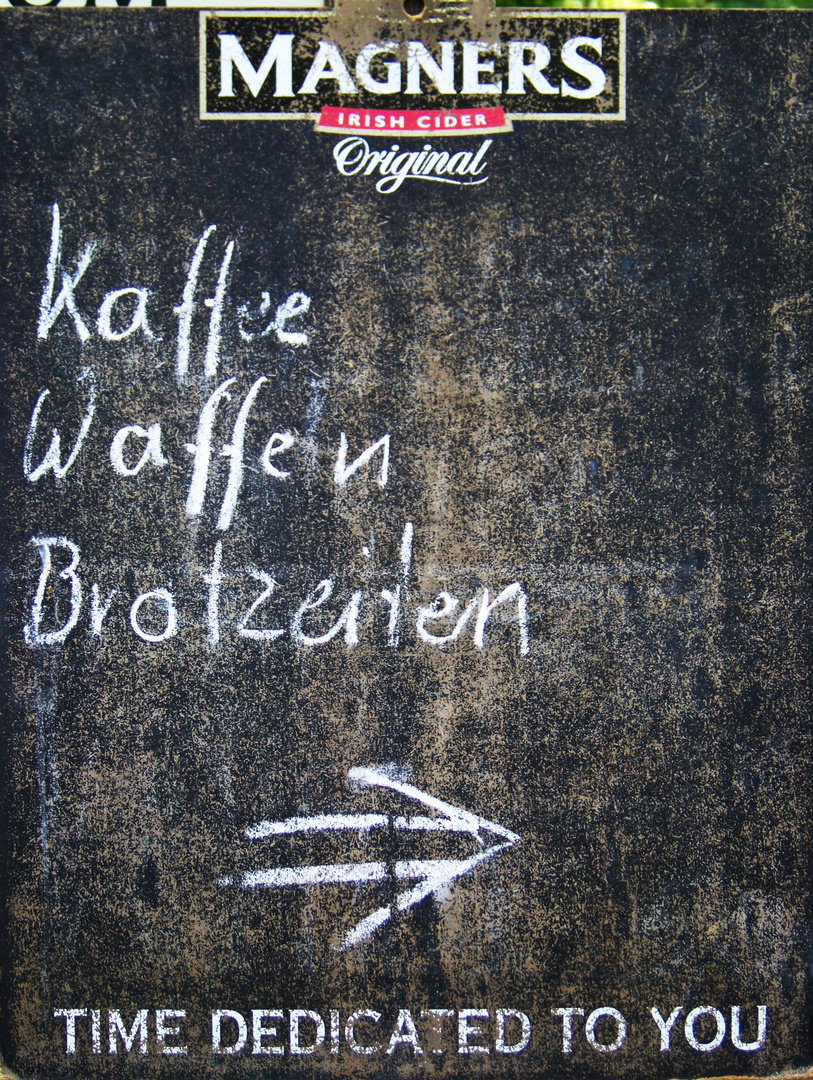 MAGNERS
IRISH CIDER
Original
Kaffee
Waffeln
Brotzeiten
TIME DEDICATED TO YOU